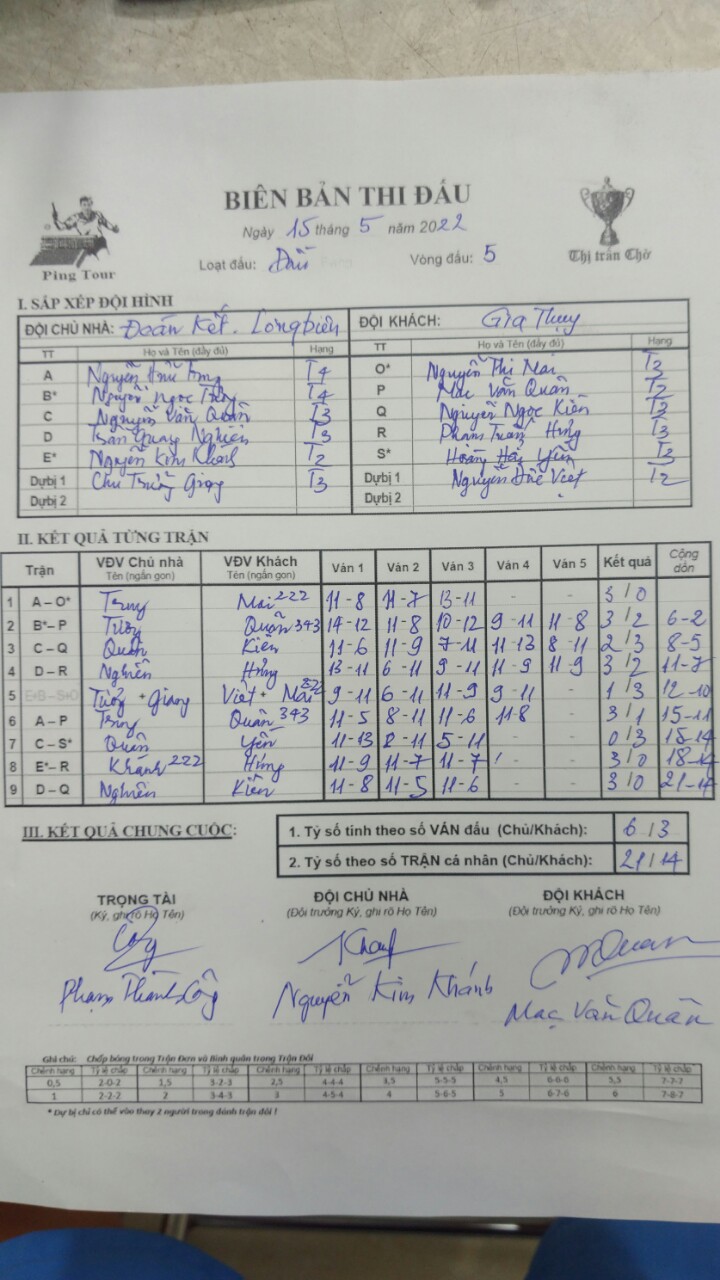 BIÊN BẢN THI ĐẤU
Ngày 15 tháng 5 năm 2022
Ping Tour
Loạt đấu: Vòng đấu: 5
Thị trấn Chờ
I. SẮP XẾP ĐỘI HÌNH
ĐỘI CHỦ NHÀ: Đoàn Kết. Longbiên ĐỘI KHÁCH: Gia Thụy
TT Họ và Tên (đầy đủ) Hạng TT Họ và Tên (đầy đủ) Hạng
A Nguyễn Hữu T4 O* Nguyễn Thị Mai T2
B* Nguyễn Ngọc T4 P Mạc Văn Quân T2
C Nguyễn Văn Quân T3 Q Nguyễn Ngọc Kiên T2
D Trần Quang Nghiên T3 R Phạm Hưng T3
E* Nguyễn Kim Khánh T2 S* Hoàng Hải Yến T3
Dự bị 1 Chu Trường Giang T3 Dự bị 1 Nguyễn Đức Việt T2
Dự bị 2 Dự bị 2
II. KẾT QUẢ TỪNG TRẬN
Trận VĐV Chủ nhà Tên (ngắn gọn) VĐV Khách Tên (ngắn gọn) Ván 1 Ván 2 Ván 3 Ván 4 Ván 5 Kết quả Cộng dồn
1 A – O* Mai 222 11-8 11-7 13-11 - - 3 / 0
2 B* – P Quân 343 14-12 11-8 10-12 9-11 11-8 3 / 2 6-2
3 C – Q Quân Kiên 11-6 11-9 7-11 11-13 8-11 2 / 3 8-5
4 D – R Nghiên Hưng 13-11 6-11 9-11 11-9 11-9 3 / 2 11-7
5 E+B – S+O + Giang Việt + Mai 9-11 6-11 11-9 9-11 - 1 / 3 12-10
6 A – P Quân 343 11-5 8-11 11-6 11-8 - 3 / 1 15-11
7 C – S* Quân Yến 11-13 2-11 5-11 - - 0 / 3 15-14
8 E* – R Khánh 222 Hưng 11-9 11-7 11-7 - 3 / 0 18-14
9 D – Q Nghiên Kiên 11-8 11-5 11-6 - - 3 / 0 21-14
III. KẾT QUẢ CHUNG CUỘC:
1. Tỷ số tính theo số VÁN đấu (Chủ/Khách): 6 / 3
2. Tỷ số theo số TRẬN cá nhân (Chủ/Khách): 21 / 14
TRỌNG TÀI ĐỘI CHỦ NHÀ ĐỘI KHÁCH
(Ký, ghi rõ Họ Tên) (Đội trưởng Ký, ghi rõ Họ Tên) (Đội trưởng Ký, ghi rõ Họ Tên)
Phạm Thành Công Nguyễn Kim Khánh Mạc Văn Quân
Ghi chú: Chấp bóng trong Trận Đơn và Bình quân trong Trận Đôi
Chênh hạng Tỷ lệ chấp Chênh hạng Tỷ lệ chấp Chênh hạng Tỷ lệ chấp Chênh hạng Tỷ lệ chấp Chênh hạng Tỷ lệ chấp Chênh hạng Tỷ lệ chấp
0,5 2-0-2 1,5 3-2-3 2,5 4-4-4 3,5 5-5-5 4,5 6-6-6 5,5 7-7-7
1 2-2-2 2 3-4-3 3 4-5-4 4 5-6-5 5 6-7-6 6 7-8-7
* Dự bị chỉ có thể vào thay 2 người trong đánh trận đôi !